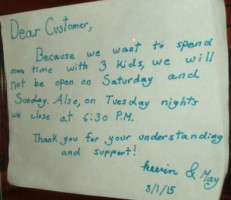 Dear Customer,
Because we want to spend
more time with 3 kids, we will
not be open on Saturday and
Sunday. Also, on Tuesday nights
we close at 6:30 P.M.
Thank you for your understanding
and support!
Kevin & May
8/1/15